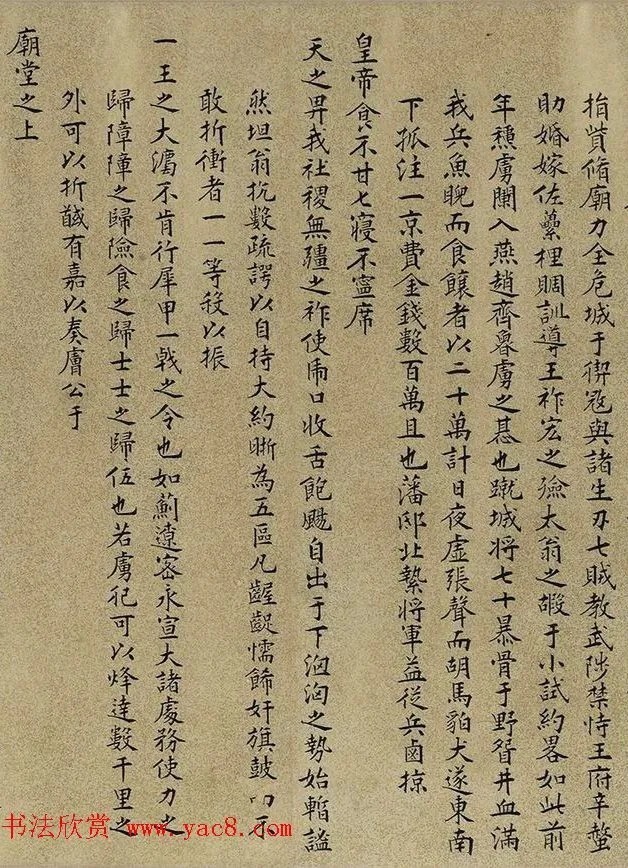 指貲脩廟力全危城于禊寇與諸生刃七賊教武陟禁恃王府辛螫
助婚嫁佐虆梩賙訓導王祚宏之殮太翁之嘏于小試約畧如此前
年穗虜闌入燕趙齊魯虜之惎也蹴城將七十暴骨于野眢井血滿
我兵魚睨而食饟者以二十萬計日夜虛張聲而胡馬豿犬遂東南
下孤注一京費金錢數百萬且也藩邸北縶將軍益從兵鹵掠
皇帝食不甘七寝不寧席
天之畀我社稷無疆之祚使帍口收舌飽颺自出于下洶洶之勢始暫謐
然坦翁抗數疏諤以自持大約晰為五區凡齷齪懦餙奸旗鼓叩示
敢折衝者一一等殺以振
一王之大漘不肯行犀甲一戟之令也如薊遼密永宣大諸處務使力之
歸障障之歸險食之歸士士之歸伍也若虜犯可以烽達數千里之
外可以折馘有嘉以奏膚公于
廟堂之上
书法欣赏 www.yac8.com